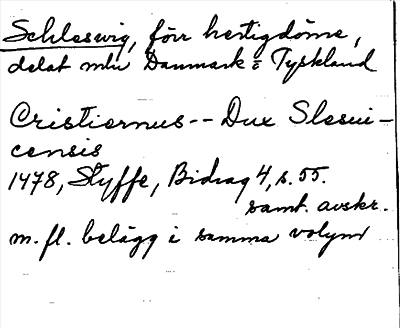 Schleswig, förr hertigdöme,
delat mln Danmark o Tyskland
Cristiernus -- Dux Slesui-
censis
1478, Styffe, Bidrag 4, s. 55.
samt. avskr.
m. fl. belägg i samma volym